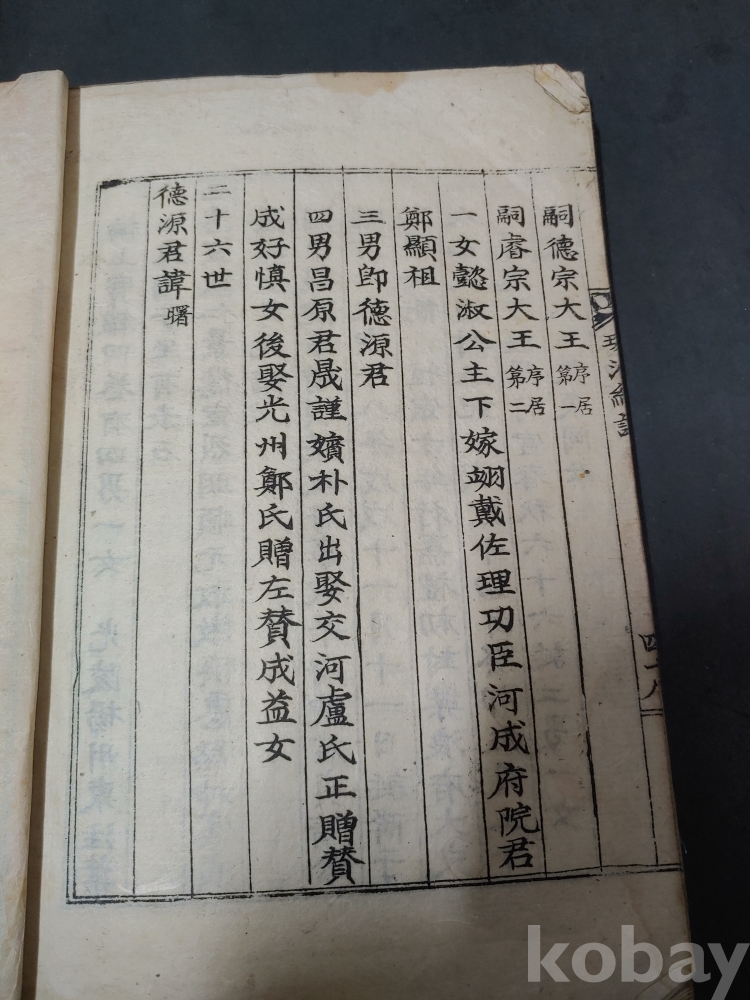 嗣德宗大王 序居第一
嗣睿宗大王 序居第二
一女懿淑公主下嫁翊戴佐理功臣河成府院君
鄭顯祖
三男卽德源君
四男昌原君晟謹嬪朴氏出娶交河盧氏正贈贊
成好愼女後娶光州鄭氏贈左贊成益女
二十六世
德源君諱曙
四十八
kobay